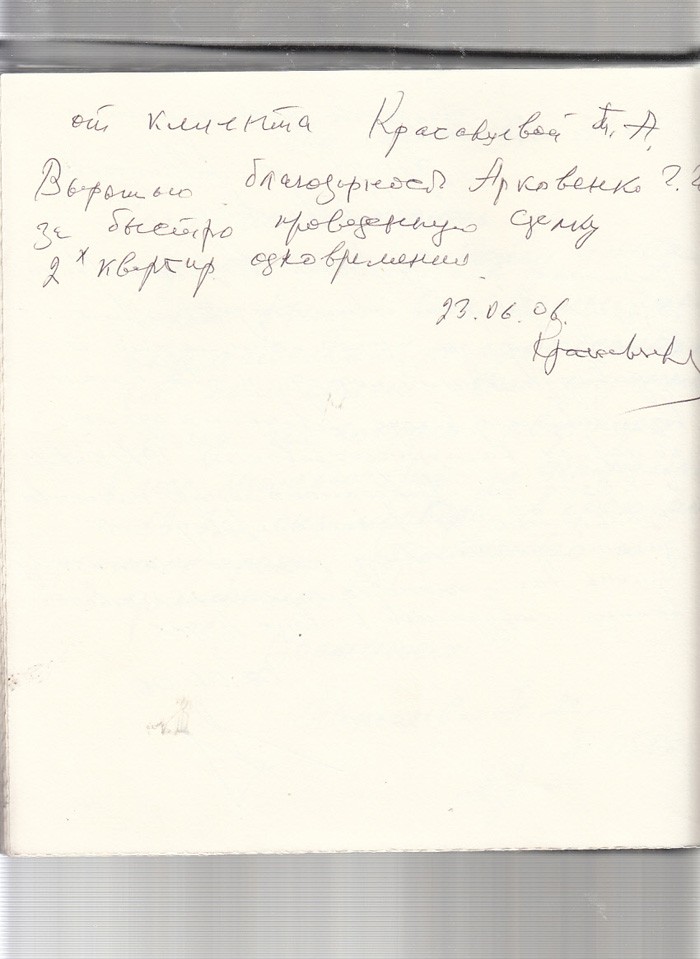 от клиента Красавцевой Т. А.
Выражаю благодарность Арковенко Г.
за быстро проведенную сделку
2х квартир одновременно
23.06.06.